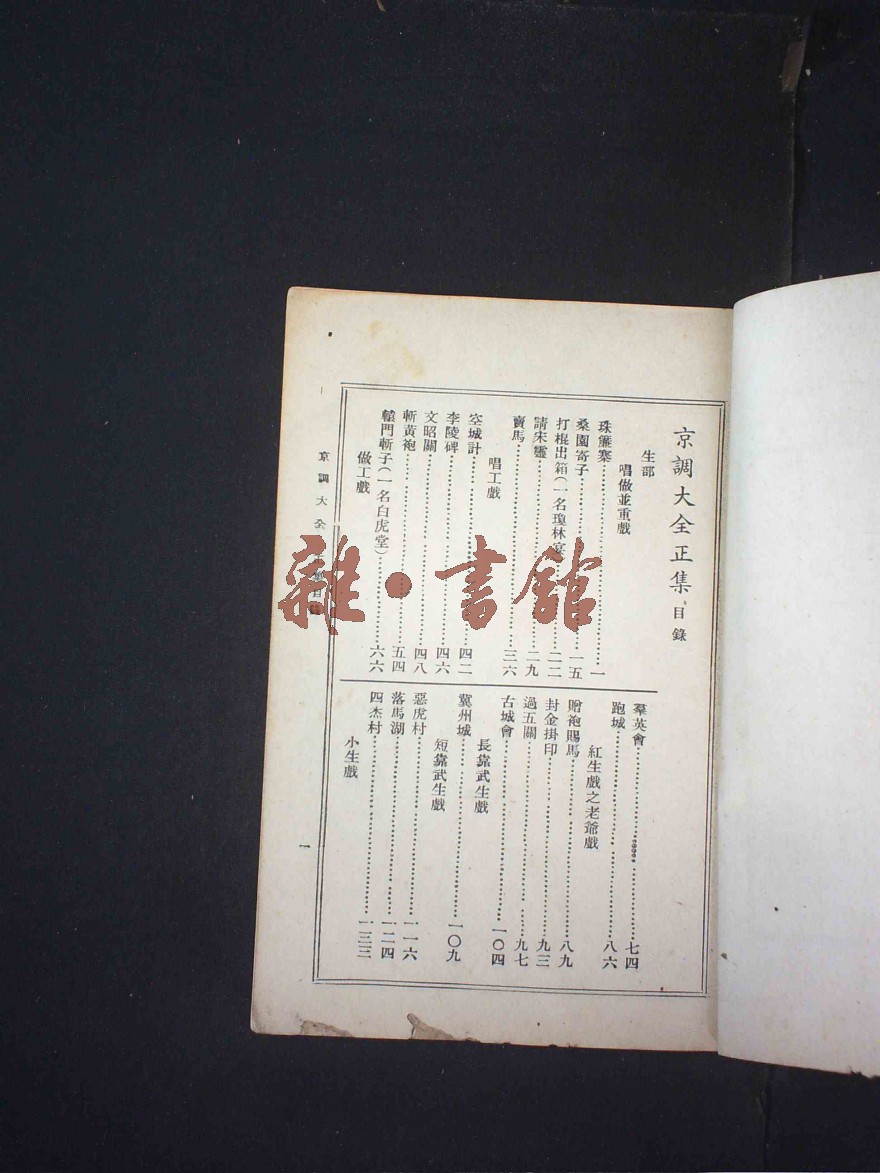 京調大全正集目錄
生部
唱做並重戲
珠簾寨……一
桑園寄子……一五
打棍出箱(一名瓊林宴)……二二
請宋靈……二九
賣馬……三六
唱工戲
空城計……四二
李陵碑……四六
文昭關……四八
斬黃袍……五四
轅門斬子(一名白虎堂)……六六
做工戲
羣英會……七四
跑城……八六
紅生戲之老爺戲
贈袍賜馬……八九
封金掛印……九三
過五關……九七
古城會……一〇四
長靠武生戲
冀州城……一〇九
短靠武生戲
惡虎村……一一六
落馬湖……一二四
四杰村……一三三
小生戲
京調大全 正集目錄
一
雜·書館